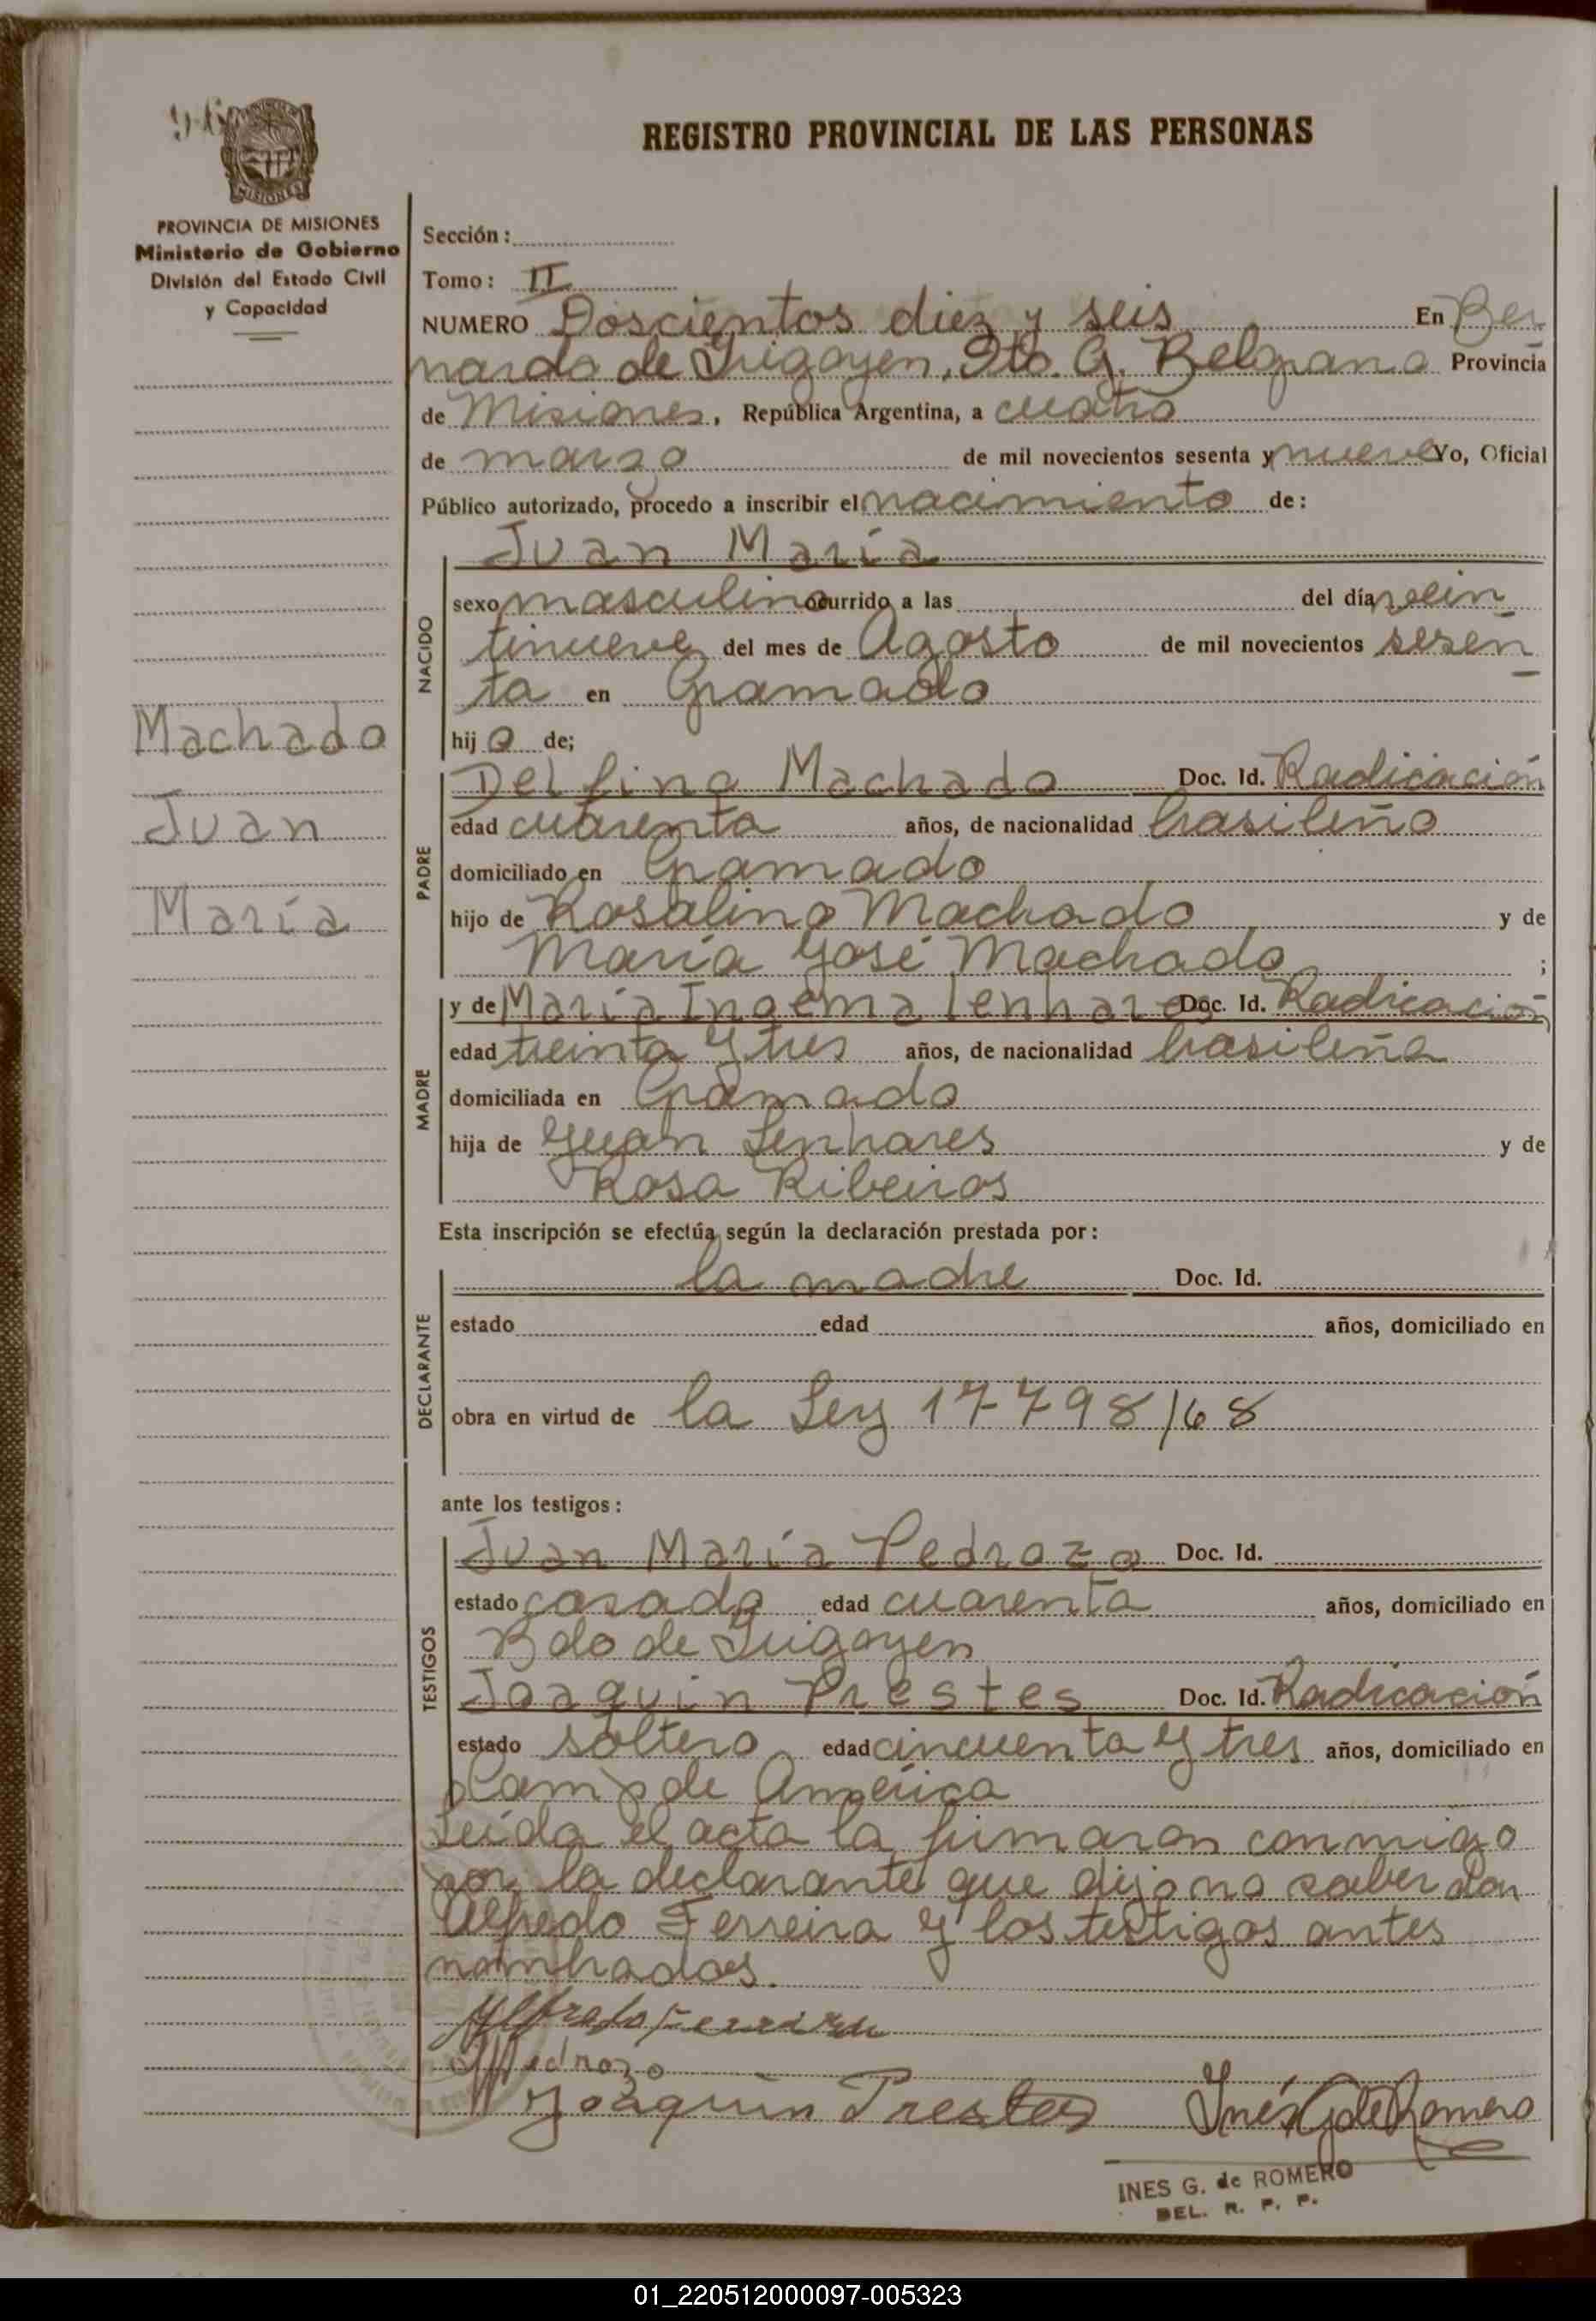 REGISTRO PROVINCIAL DE LAS PERSONAS
MISIONES
PROVINCIA DE MISIONES
Ministerio de Gobierno
División del Estado Civil
y Capacidad
Machado
Juan
María
Sección:
Tomo: II
NUMERO Doscientos diez y seis En Ber
nardo de Irigoyen, Dto. G. Belgrano Provincia
de Misiones, República Argentina, a cuatro
de marzo de mil novecientos sesenta y nueve Yo, Oficial
Público autorizado, procedo a inscribir el nacimiento de:
Juan María
NACIDO
sexo masculino ocurrido a las del día vein
tinueve del mes de Agosto de mil novecientos sesen
ta en Gramado
hij o de;
PADRE
Delfino Machado Doc. Id. Radicación
edad cuarenta años, de nacionalidad brasileño
domiciliado en Gramado
hijo de Rosalino Machado y de
María José Machado ;
MADRE
y de María Ingema lenhares Doc. Id. Radicación
edad treinta y tres años, de nacionalidad brasileña
domiciliada en Gramado
hija de Juan Lenhares y de
Rosa Ribeiros
Esta inscripción se efectúa según la declaración prestada por:
DECLARANTE
la madre Doc. Id.
estado edad años, domiciliado en
obra en virtud de la Ley 17798/68
ante los testigos:
TESTIGOS
Juan María Pedrozo Doc. Id.
estado casado edad cuarenta años, domiciliado en
Bdo de Irigoyen
Joaquin Prestes Doc. Id. Radicación
estado soltero edad cincuenta y tres años, domiciliado en
Camp de América
Leída el acta la firmaron conmigo
por la declarante que dijo no saber don
Alfredo Ferreira y los testigos antes
nombrados.
Alfredo Ferreira
Pedrozo
Joaquin Prestes Inés G de Romero
INES G. de ROMERO
DEL. R. P. P.
01_220512000097-005323